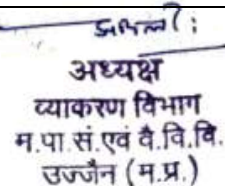 अध्यक्ष
व्याकरण विभाग
म.पा.सं.एवं वै.वि.वि.
उज्जैन (म.प्र.)